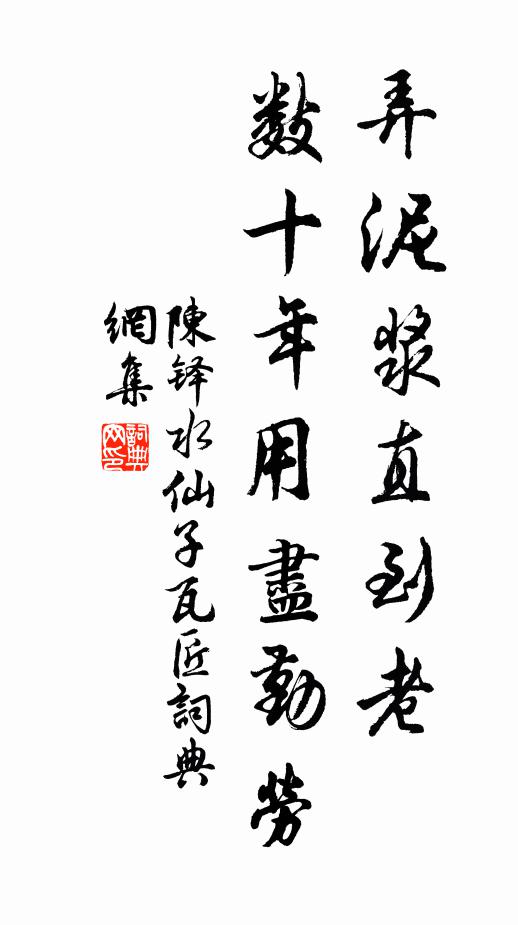 弄泥漿直到老
數十年用盡勤勞
陳铎水仙子瓦匠詞典
網集
詞典
网印